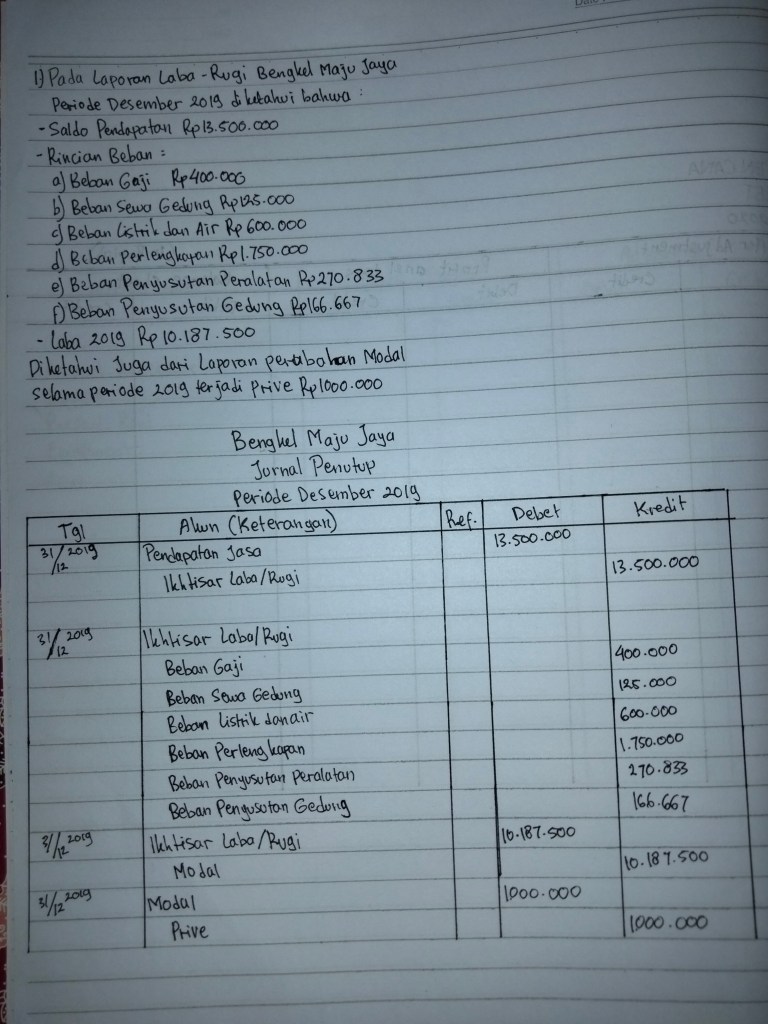 1) Pada Laporan Laba - Rugi Bengkel Maju Jaya
Periode Desember 2019 diketahui bahwa :
- Saldo Pendapatan Rp13.500.000
- Rincian Beban :
a) Beban Gaji Rp400.000
b) Beban Sewa Gedung Rp125.000
c) Beban Listrik dan Air Rp 600.000
d) Beban Perlengkapan Rp1.750.000
e) Beban Penyusutan Peralatan Rp270.833
f) Beban Penyusutan Gedung Rp166.667
- Laba 2019 Rp 10.187.500
Diketahui Juga dari Laporan perubahan Modal
selama periode 2019 terjadi Prive Rp1000.000
Bengkel Maju Jaya
Jurnal Penutup
Periode Desember 2019
Tgl Akun (Keterangan) Ref. Debet Kredit
31/12 2019 Pendapatan Jasa 13.500.000
Ikhtisar Laba/Rugi 13.500.000
31/12 2019 Ikhtisar Laba/Rugi
Beban Gaji 400.000
Beban Sewa Gedung 125.000
Beban Listrik dan air 600.000
Beban Perlengkapan 1.750.000
Beban Penyusutan Peralatan 270.833
Beban Penyusutan Gedung 166.667
31/12 2019 Ikhtisar Laba/Rugi 10.187.500
Modal 10.187.500
31/12 2019 Modal 1000.000
Prive 1000.000